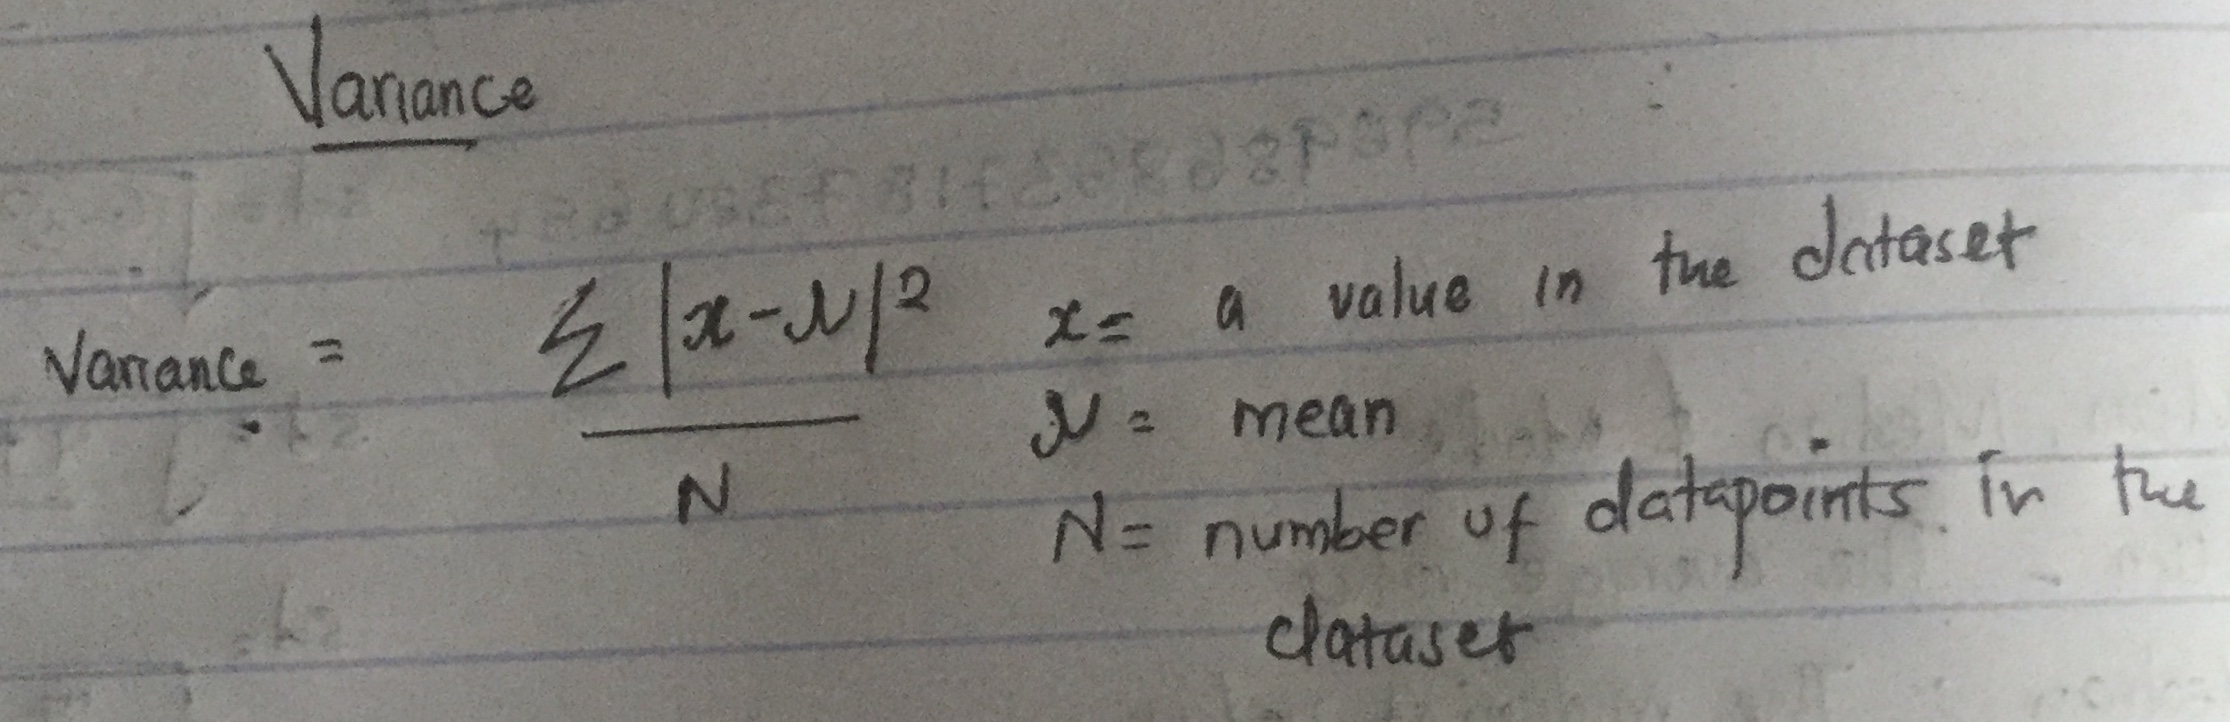 Variance
Variance = Σ|x-μ|² / N
x = a value in the dataset
μ = mean
N = number of datapoints in the
dataset